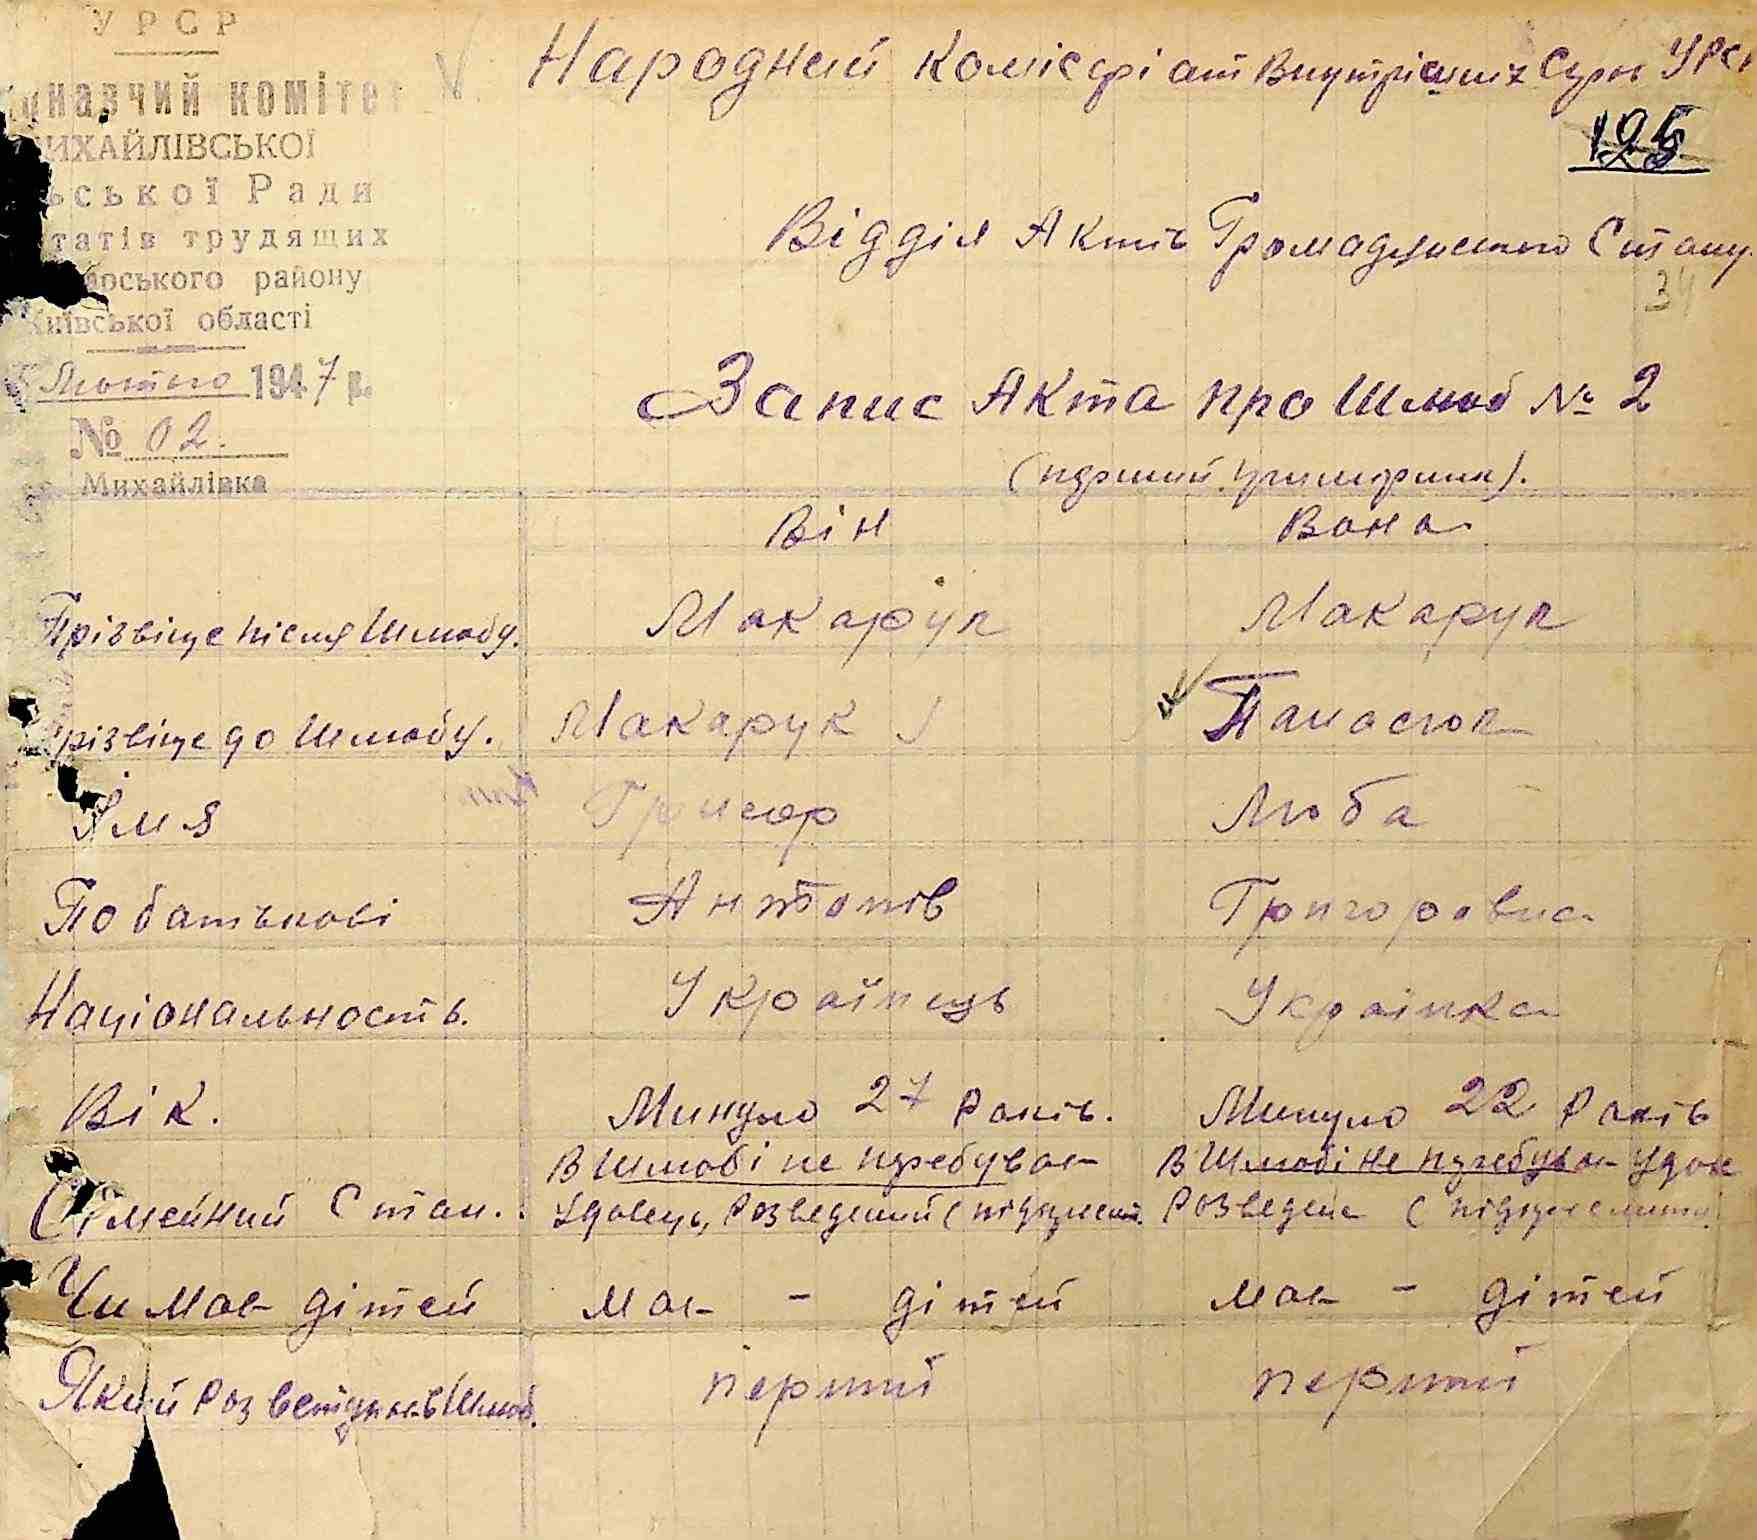 УРСР
навчий комітет
ИХАЙЛІВСЬКОЇ
ської Ради
татів трудящих
ського району
Київської області
Лютого 1947 р.
№ 02.
Михайлівка
Народний Комісаріат Внутрішніх Справ УРСР
125
Відділ Актів Громадянського Стану.
34
Запис Акта про Шлюб № 2
(перший примірник).
Він Вона
Прізвіще після Шлюбу. Макарук Макарук
різвіще до Шлюбу. Макарук Панасюк
Імя Григор Люба
По батькові Антонів Григоровна
Національность. Українець Українка
Вік. Минуло 27 Років. Минуло 22 Років
В Шлюбі не перебував В Шлюбі не перебував Удова
Сімейний Стан. Удовець, Розведений (підкресл. Розведена (підкреслити)
Чи має дітей має - дітей має - дітей
Який раз вступив в Шлюб. перший перший